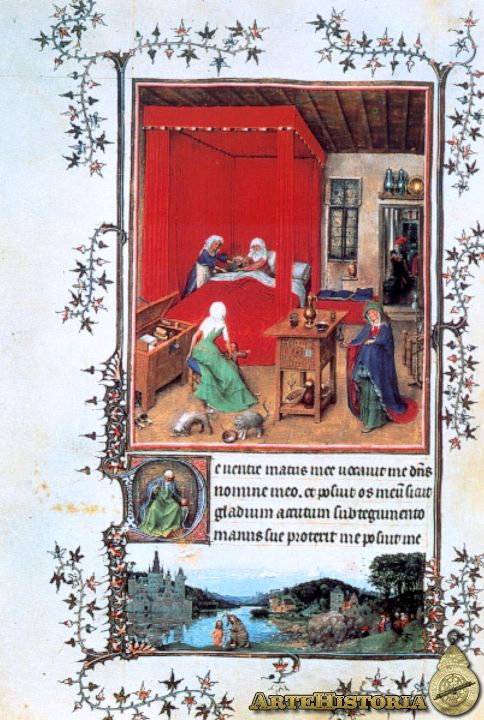 De ventre matris mee vocavit me dn̄s
nomine meo. et posuit os meū sicut
gladium acutum sub tegumento
manus sue protexit me posuit me
ARTEHISTORIA